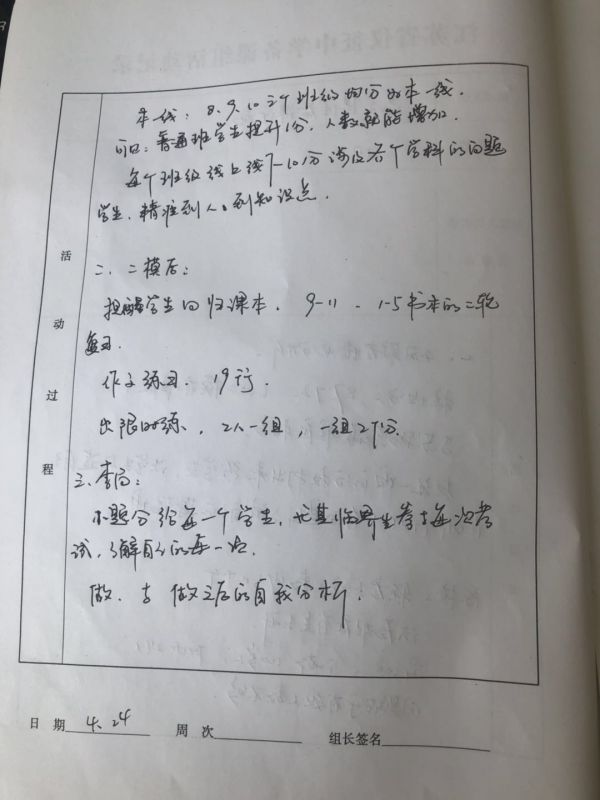 本一线：8、9、10三个班级均分如本一线。
可以：普通班学生提升1分，人数就能增加。
每个班级线上线下7-10分涉及各个学科的问题
学生，精准到人，到知识点。
二、二模后：
提醒学生回归课本，9-11，1-5书本的二轮
复习。
作文练习，19行。
出限时练，2人一组，一组2个份。
三、李局：
小题分给每一个学生，尤其临界生参与每次考
试，了解自己的每一次
做，与做之后的自我分析。
活动过程
日 期 4.24 周 次 组长签名